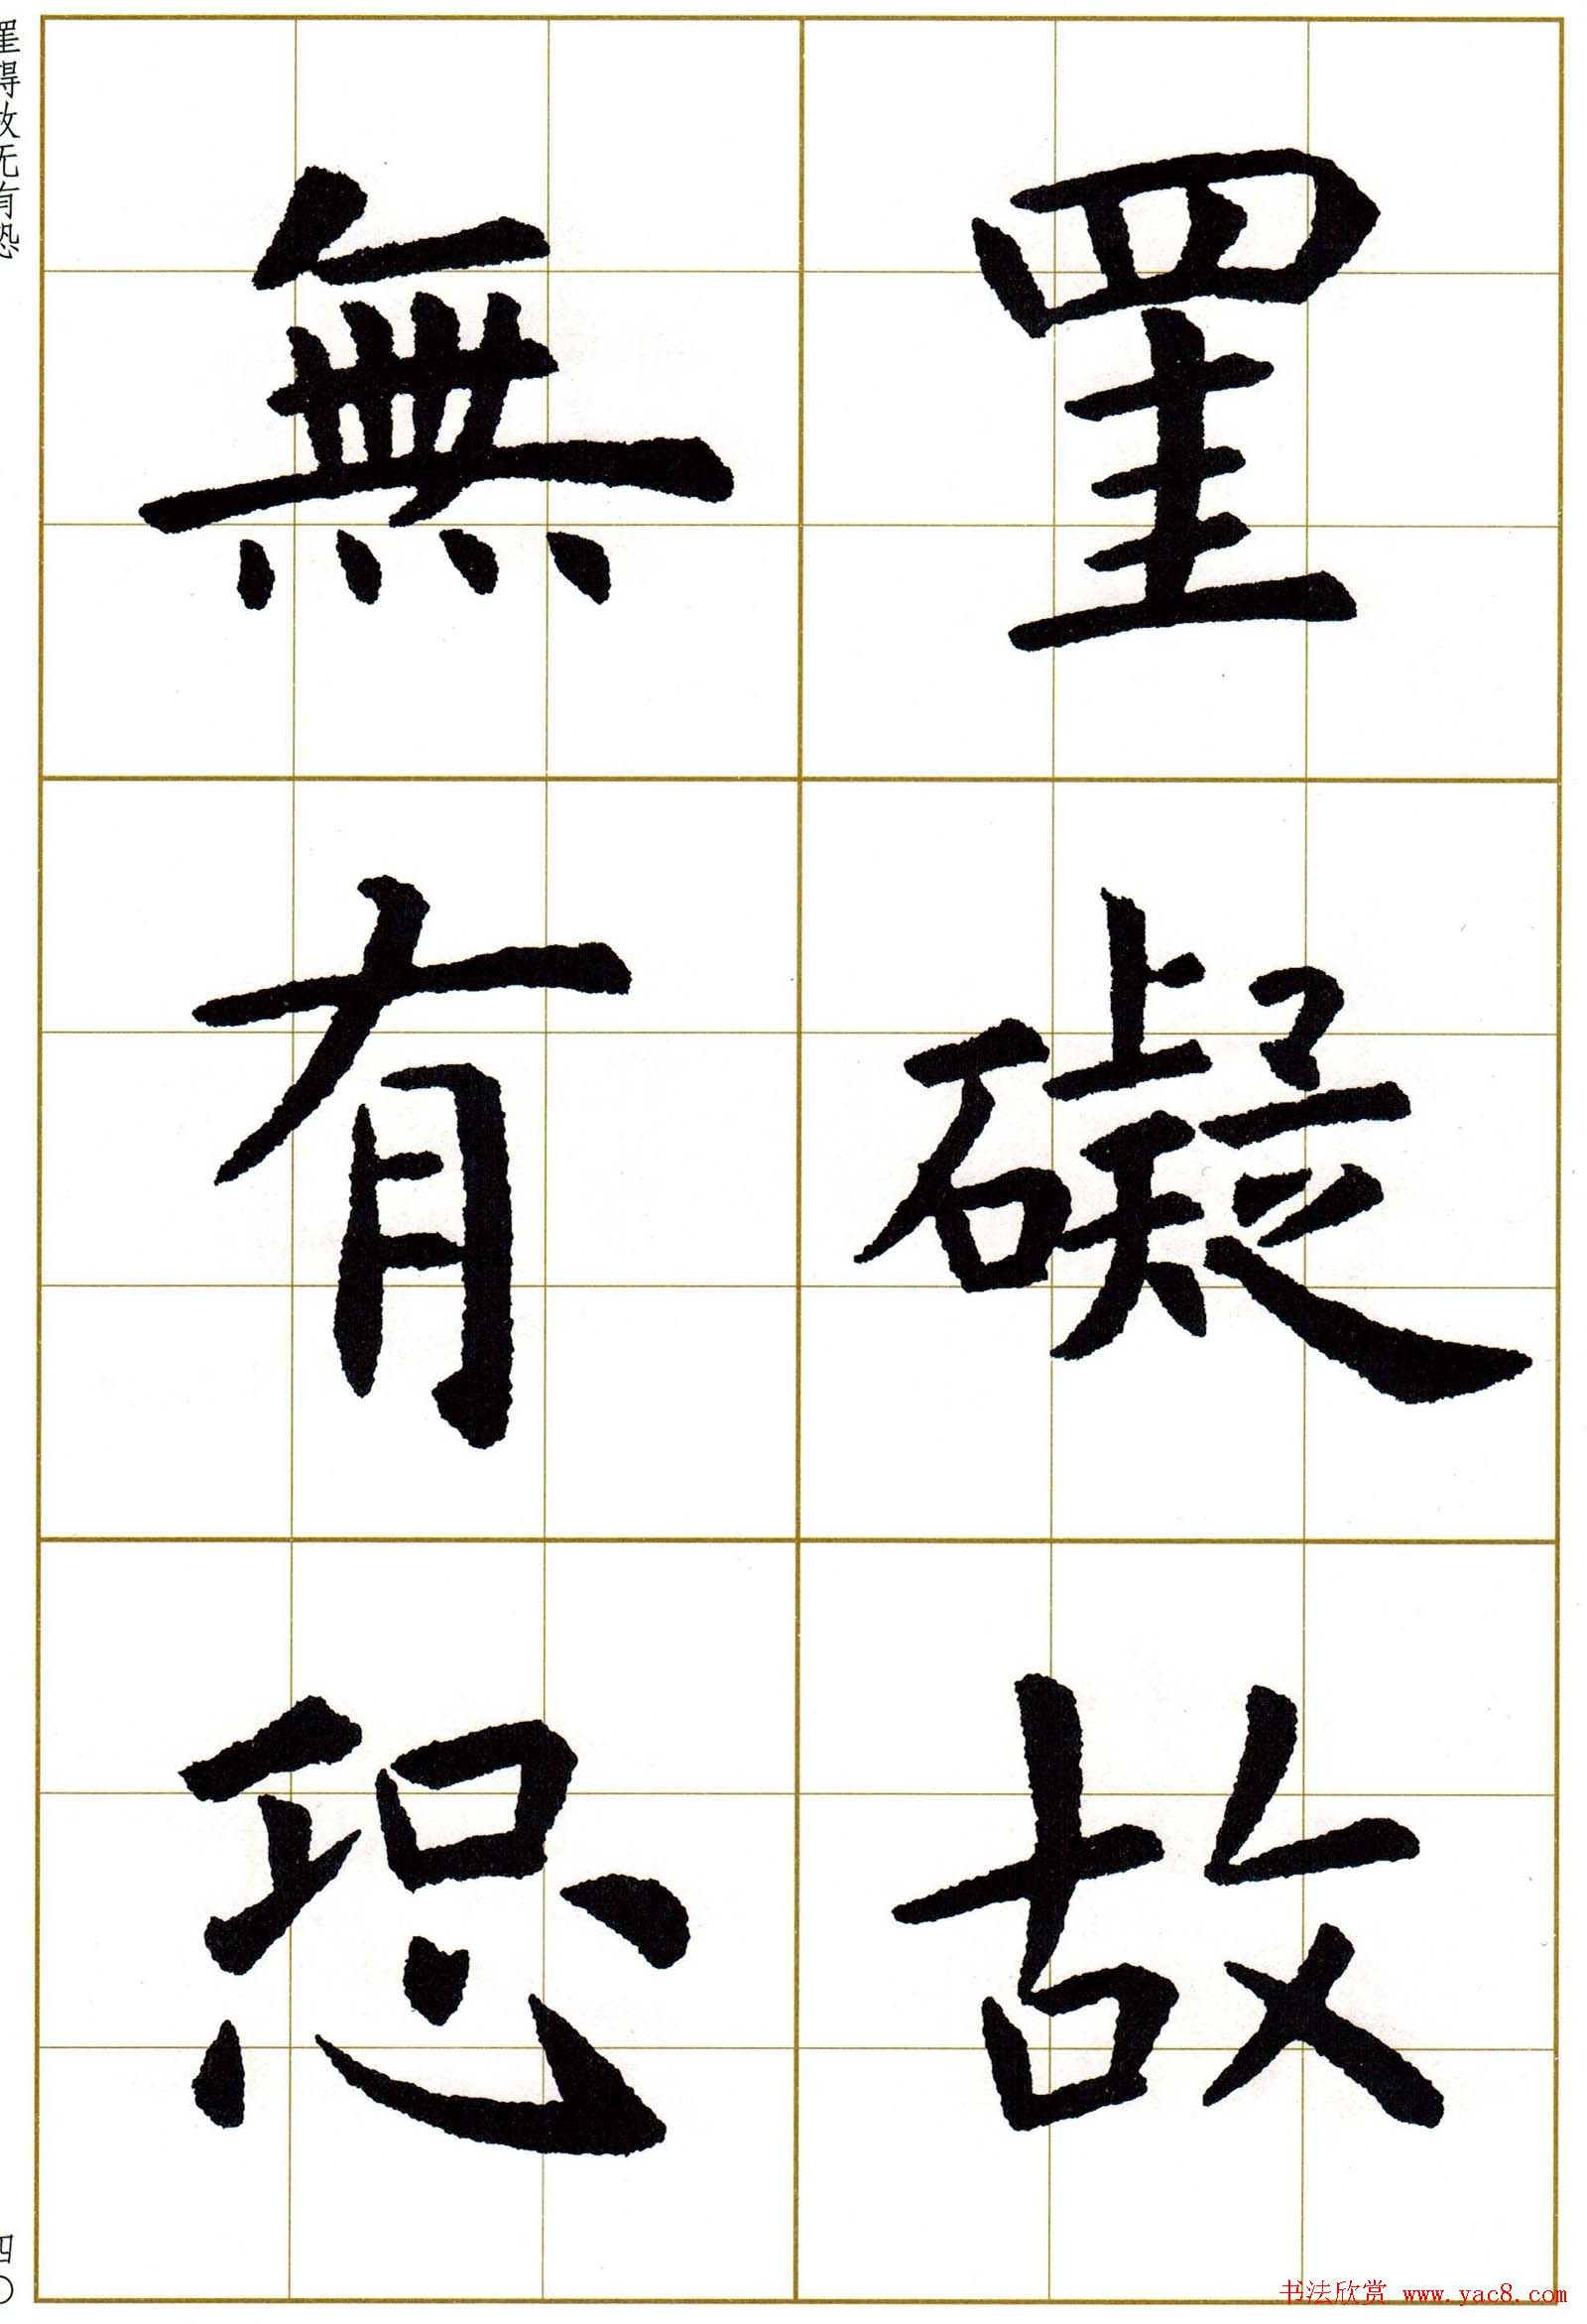 罣礙故
無有恐
罣碍故无有恐
四〇
书法欣赏 www.yac8.com